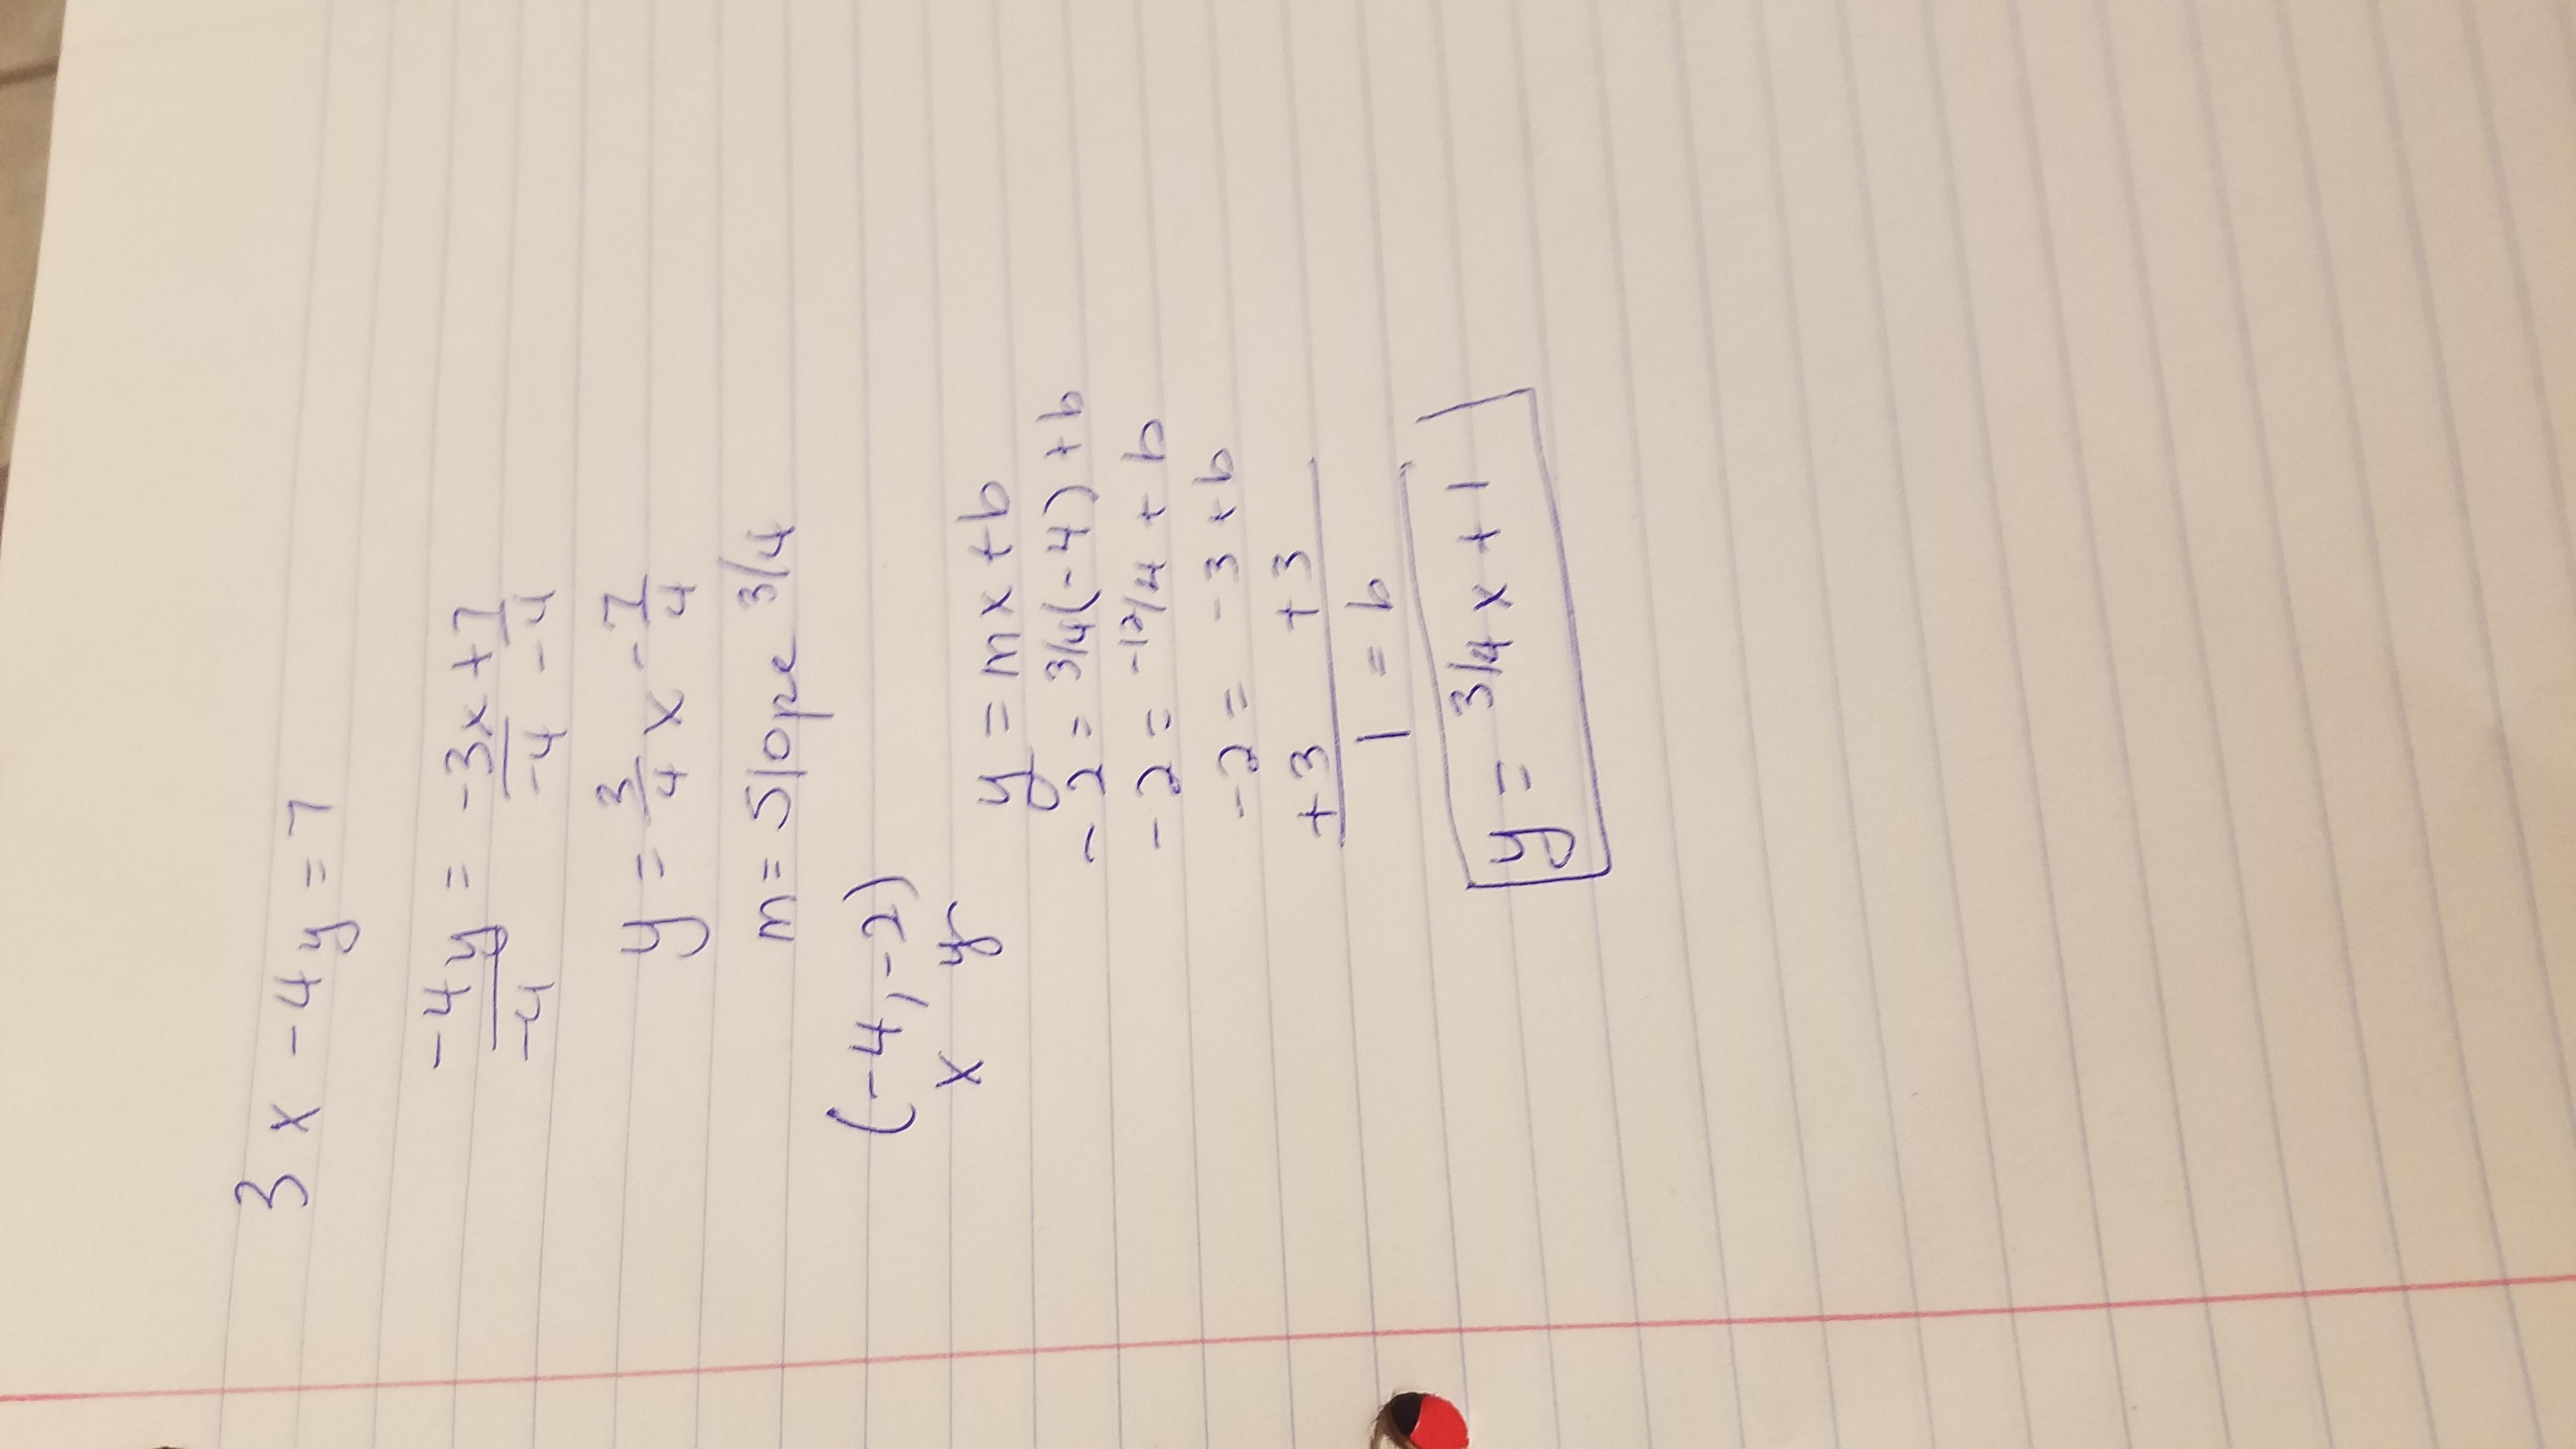 3x - 4y = 7
-4y = -3x + 7
-4 -4 -4
y = 3/4 x - 7/4
m = slope 3/4
(-4, -2)
x y
y = mx + b
-2 = 3/4(-4) + b
-2 = -12/4 + b
-2 = -3 + b
+3 +3
1 = b
y = 3/4 x + 1